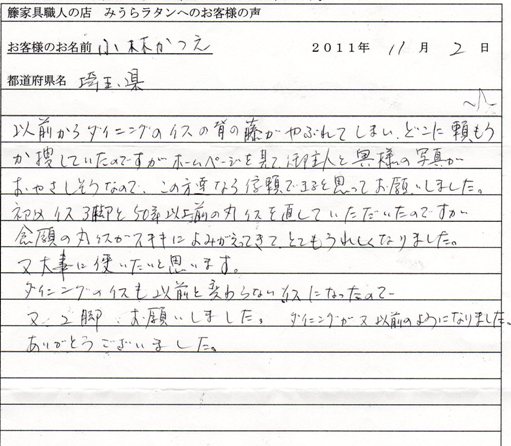 籐家具職人の店　みうらラタンへのお客様の声
お客様のお名前 小林かつえ　2011年 11月 2日
都道府県名 埼玉県
以前からダイニングのイスの背の藤がやぶれてしまい、どこに頼もう
か捜していたのですがホームページを見て御主人と奥様の写真が
おやさしそうなので、この方達なら信頼できると思ってお願いしました。
初めイス3脚と50年以上前の丸イスを直していただいたのですが
念願の丸イスがステキによみがえってきて、とてもうれしくなりました。
又大事に使いたいと思います。
ダイニングのイスも以前と変わらないイスになったので
又、2脚、お願いしました。 ダイニングが又以前のようになりました。
ありがとうございました。